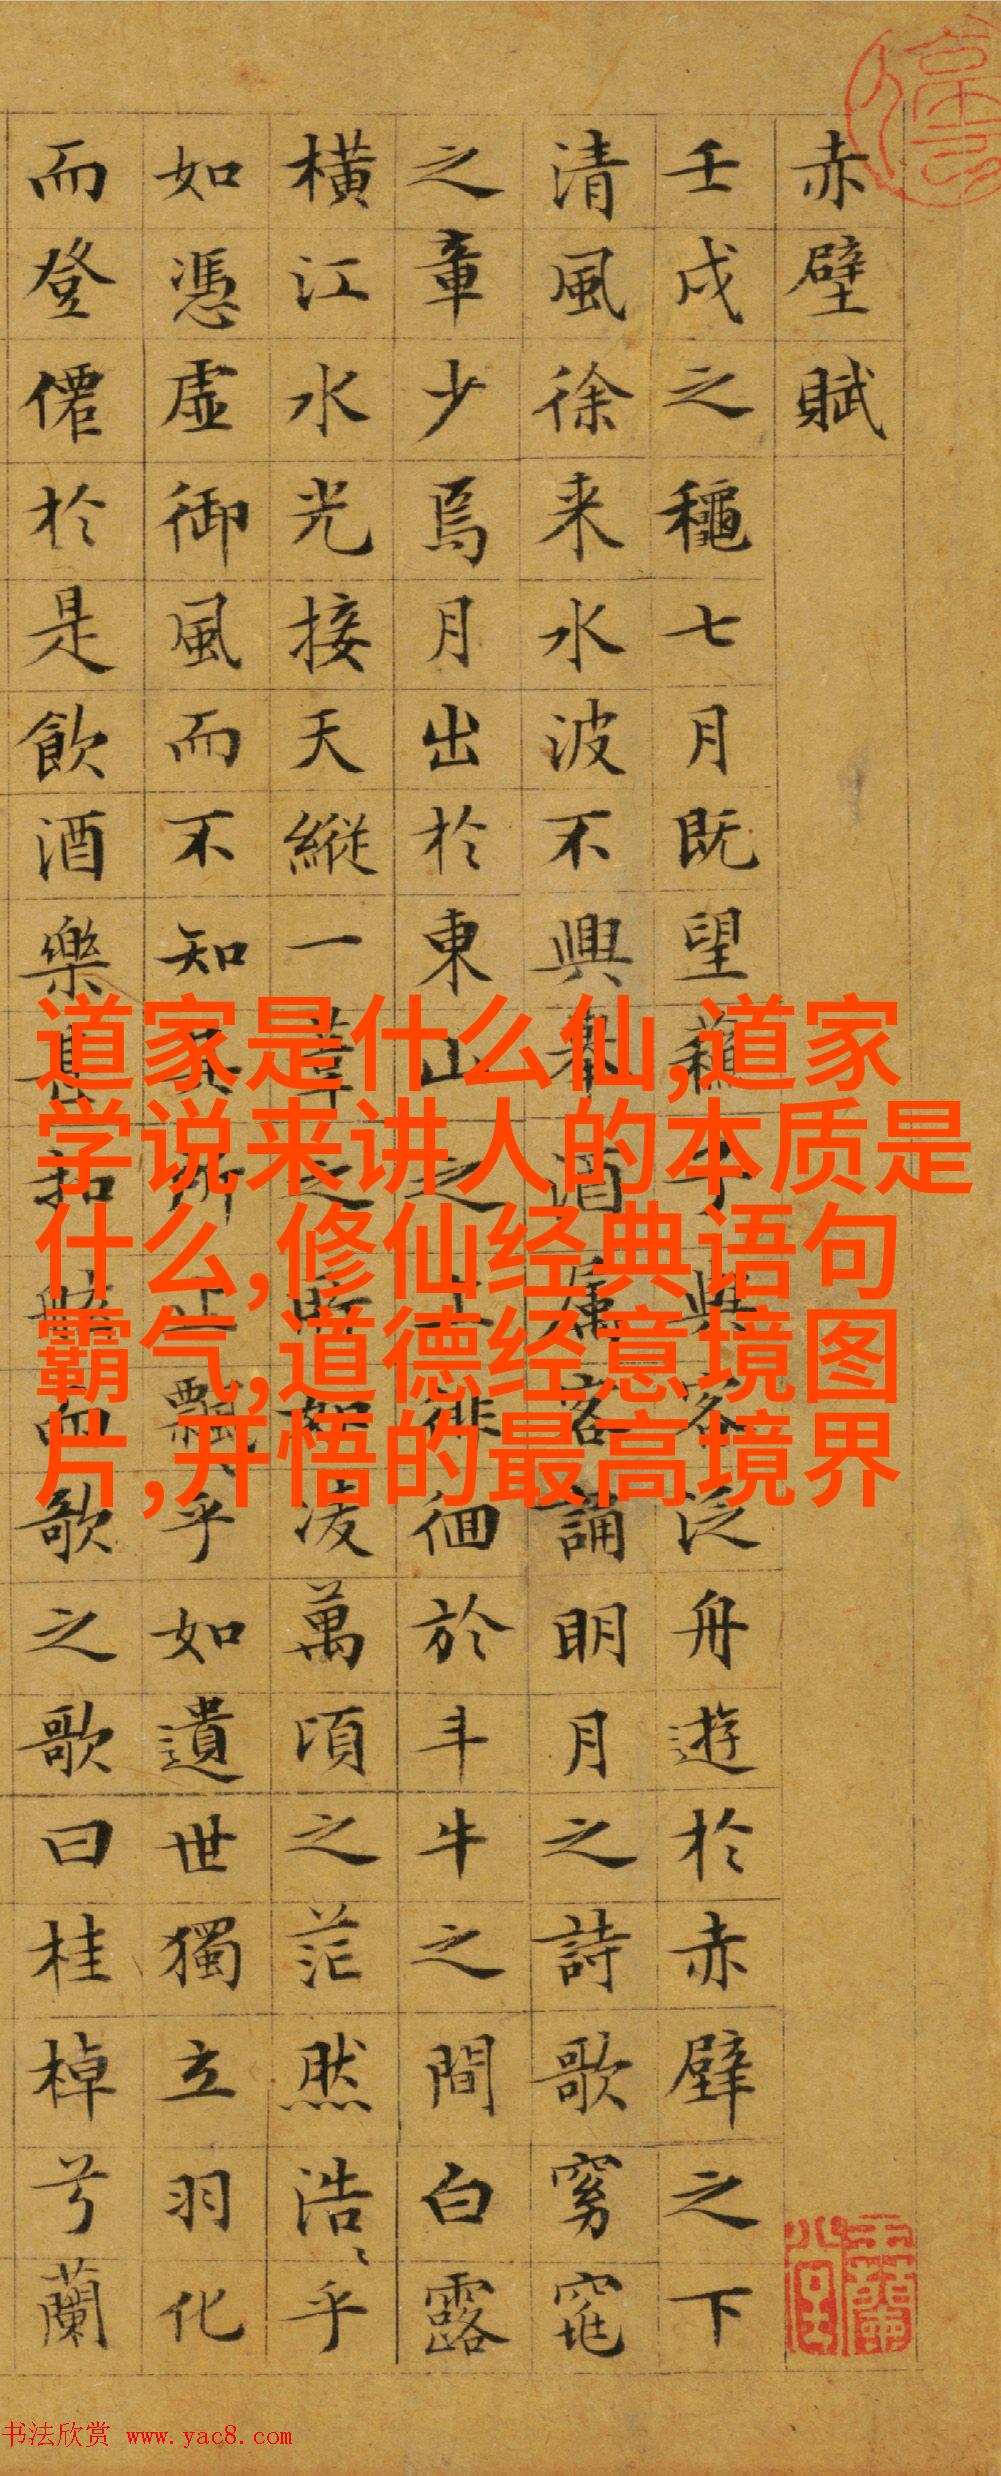 赤壁賦
壬戌之穐七月既望蘇子與客泛舟遊於赤壁之下
清風徐来水波不興舉酒属客誦明月之詩歌窈窕
之章少焉月出於東山之上徘徊於斗牛之間白露
橫江水光接天縱一葦之所如凌萬頃之茫然浩〻乎
如憑虛御風而不知其所止飄〻乎如遺世獨立羽化
而登僊於是飲酒樂甚扣舷而歌之歌曰桂棹兮蘭
道家是什么仙,道家
学说来讲人的本质是
什么,修仙经典语句
霸气,道德经意境图
片,开悟的最高境界
书法欣赏 www.yac8.com